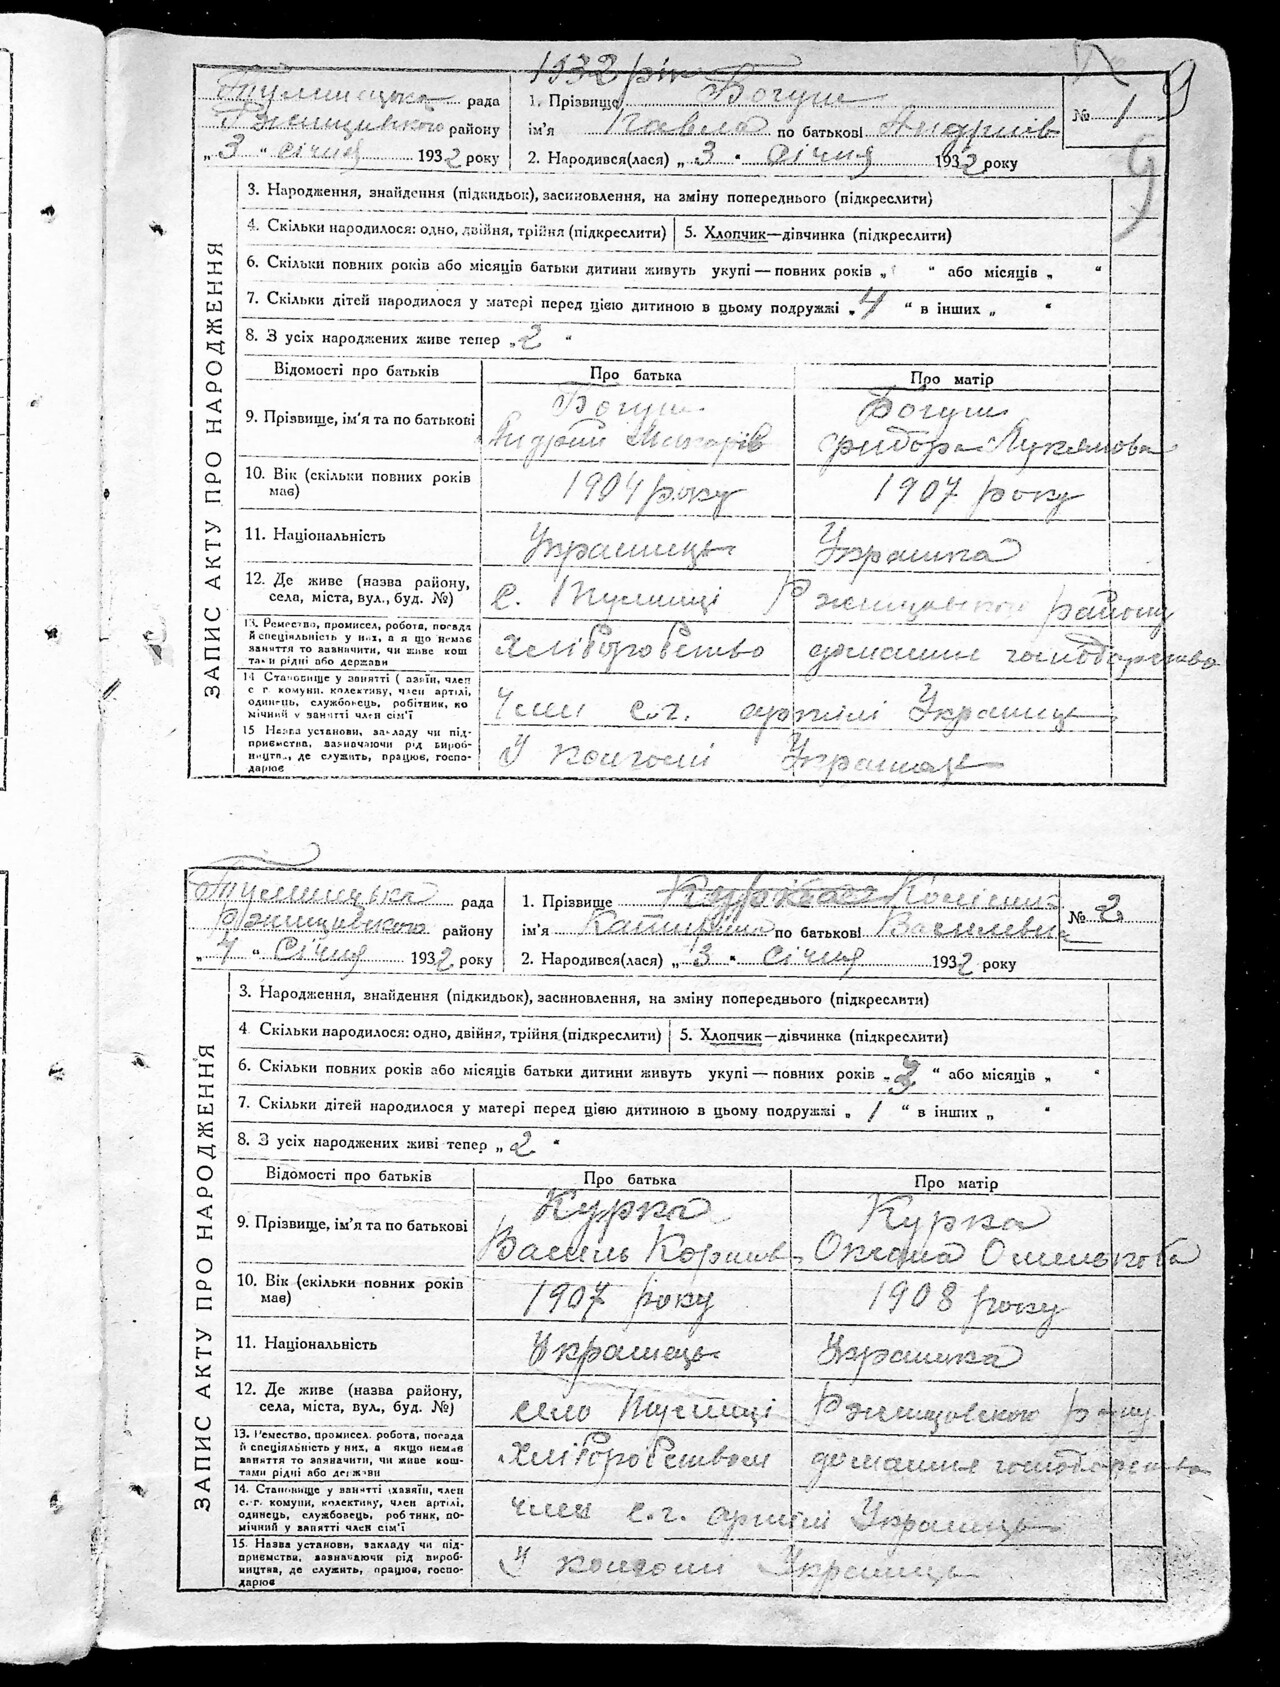 1932 рік
9
Тулинцька рада
Ржищівського району
„ 3 “ січня 1932 року
1. Прізвище Богуш
ім'я Павло по батькові Андріїв
№ 1
2. Народився(лася) „ 3 “ січня 1932 року
9
ЗАПИС АКТУ ПРО НАРОДЖЕННЯ
3. Народження, знайдення (підкидьок), засиновлення, на зміну попереднього (підкреслити)
4. Скільки народилося: одно, двійня, трійня (підкреслити)
5. Хлопчик—дівчинка (підкреслити)
6. Скільки повних років або місяців батьки дитини живуть укупі — повних років „ “ або місяців „ “
7. Скільки дітей народилося у матері перед цією дитиною в цьому подружжі „ 4 “ в інших „ “
8. З усіх народжених живе тепер „ 2 “
Відомості про батьків
Про батька
Про матір
9. Прізвище, ім'я та по батькові
Богуш
Андрій
Богуш
Лукянова
10. Вік (скільки повних років має)
1904 року
1907 року
11. Національність
Українець
Українка
12. Де живе (назва району, села, міста, вул., буд. №)
с. Тулинці Ржищовського району
13. Ремество, промисел, робота, посада й спеціяльність у них, а якщо немає заняття то зазначити, чи живе коштами рідні або держави
хліборобство
домашнє господарство
14. Становище у занятті (хазяїн, член с. г. комуни, колективу, член артілі, одинець, службовець, робітник, помічний у занятті член сім'ї
Член с.г. артілі Українець
15. Назва установи, закладу чи підприємства, зазначаючи рід виробництва, де служить, працює, господарює
У колгоспі Українець
Тулиницька рада
Ржищівського району
„ 4 “ Січня 1932 року
1. Прізвище
ім'я Катирина по батькові Василівна
№ 2
2. Народився(лася) „ 3 “ січня 1932 року
ЗАПИС АКТУ ПРО НАРОДЖЕННЯ
3. Народження, знайдення (підкидьок), засиновлення, на зміну попереднього (підкреслити)
4. Скільки народилося: одно, двійня, трійня (підкреслити)
5. Хлопчик—дівчинка (підкреслити)
6. Скільки повних років або місяців батьки дитини живуть укупі — повних років „ 3 “ або місяців „ “
7. Скільки дітей народилося у матері перед цією дитиною в цьому подружжі „ 1 “ в інших „ “
8. З усіх народжених живі тепер „ 2 “
Відомості про батьків
Про батька
Про матір
9. Прізвище, ім'я та по батькові
Курка
Василь
Курка
Оксана Омелькова
10. Вік (скільки повних років має)
1907 року
1908 року
11. Національність
Українець
Українка
12. Де живе (назва району, села, міста, вул., буд. №)
село Тулинці Ржищовського р-ну
13. Ремество, промисел, робота, посада й спеціяльність у них, а якщо немає заняття то зазначити, чи живе коштами рідні або держави
хліборобством
домашнє господарство
14. Становище у занятті (хазяїн, член с.-г. комуни, колективу, член артілі, одинець, службовець, робітник, помічний у занятті член сім'ї
член с.г. артілі Українець
15. Назва установи, закладу чи підприємства, зазначаючи рід виробництва, де служить, працює, господарює
У колгоспі Українець